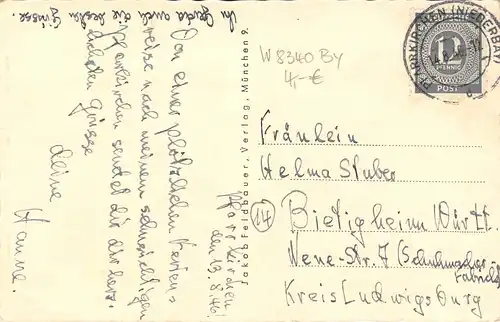 Pfarrkirchen,
den 13.8.46!
Von einer plötzlichen Ferien=
reise nach meinem sehnsüchtigen
Pfarrkirchen sendet dir die herz-
lichsten Grüsse
deine
Hanne.
An Gerda auch die besten
Grüsse.
W 8340 By
4,-€
Jakob Feldbauer, Verlag, München 9.
PFARRKIRCHEN (NIEDERBAY)
12
PFENNIG
POST
Fräulein
Helma Stuber
(14) Bietigheim Württ.
Neue-Str. 7 (Schuhmacher-
fabrick)
Kreis Ludwigsburg